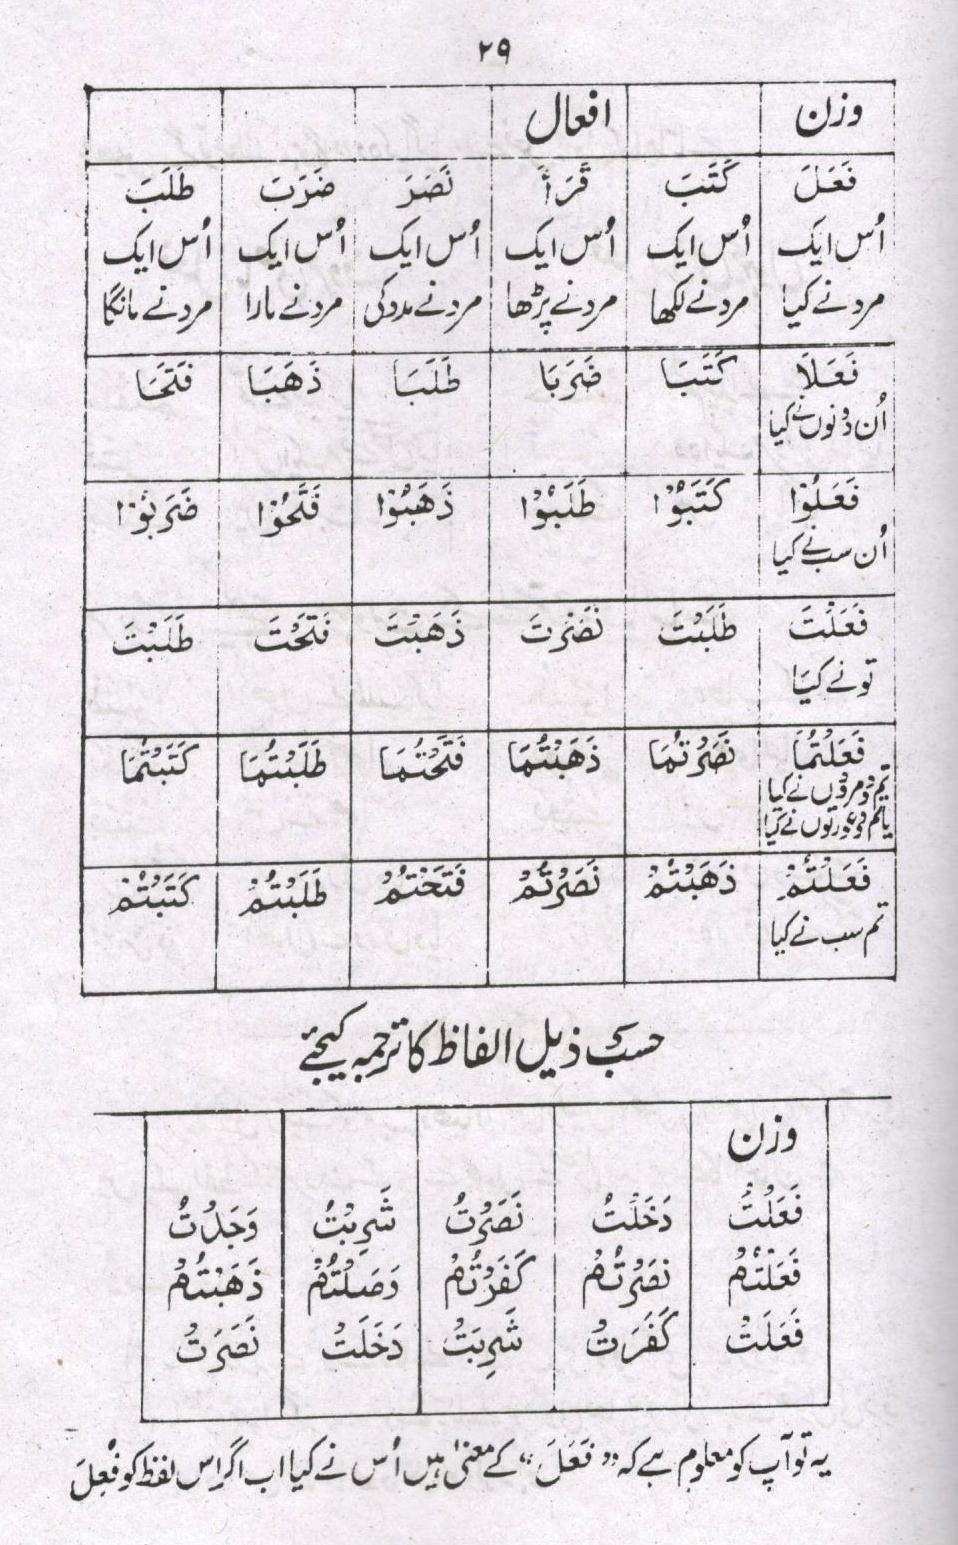 ۲۹
وزن افعال
فَعَلَ كَتَبَ قَرَأَ نَصَرَ ضَرَبَ طَلَبَ
اُس ایک اُس ایک اُس ایک اُس ایک اُس ایک اُس ایک
مرد نے کیا مرد نے لکھا مرد نے پڑھا مرد نے مدد کی مرد نے مارا مرد نے مانگا
فَعَلَا كَتَبَا ضَرَبَا طَلَبَا ذَهَبَا فَتَحَا
اُن دونوں نے کیا
فَعَلُوْا كَتَبُوْا طَلَبُوْا ذَهَبُوْا فَتَحُوْا ضَرَبُوْا
اُن سب نے کیا
فَعَلْتَ طَلَبْتَ نَصَرْتَ ذَهَبْتَ فَتَحْتَ طَلَبْتَ
تو نے کیا
فَعَلْتُمَا نَصَرْتُمَا ذَهَبْتُمَا فَتَحْتُمَا طَلَبْتُمَا كَتَبْتُمَا
تم دو مردوں نے کیا
یا تم دو عورتوں نے کیا
فَعَلْتُمْ ذَهَبْتُمْ نَصَرْتُمْ فَتَحْتُمْ طَلَبْتُمْ كَتَبْتُمْ
تم سب نے کیا
حسب ذیل الفاظ کا ترجمہ کیجئے
وزن
فَعَلْتُ دَخَلْتُ نَصَرْتُ شَرِبْتُ وَجَدْتُ
فَعَلْتُمْ نَصَرْتُمْ كَفَرْتُمْ وَصَلْتُمْ ذَهَبْتُمْ
فَعَلَتْ كَفَرَتْ شَرِبَتْ دَخَلَتْ نَصَرَتْ
یہ تو آپ کو معلوم ہے کہ "فَعَلَ" کے معنیٰ ہیں اُس نے کیا اب اگر اس لفظ کو فُعِلَ